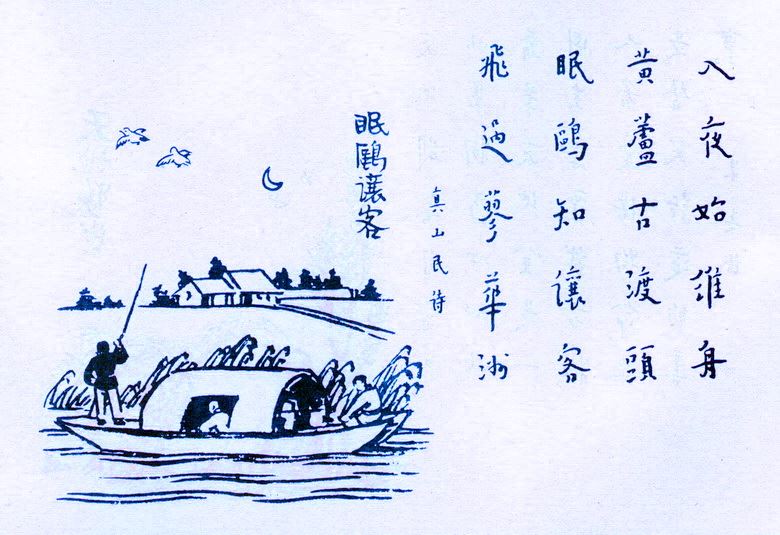 入夜始維舟
黄蘆古渡頭
眠鷗知讓客
飛過蓼華洲
真山民诗
眠鷗讓客